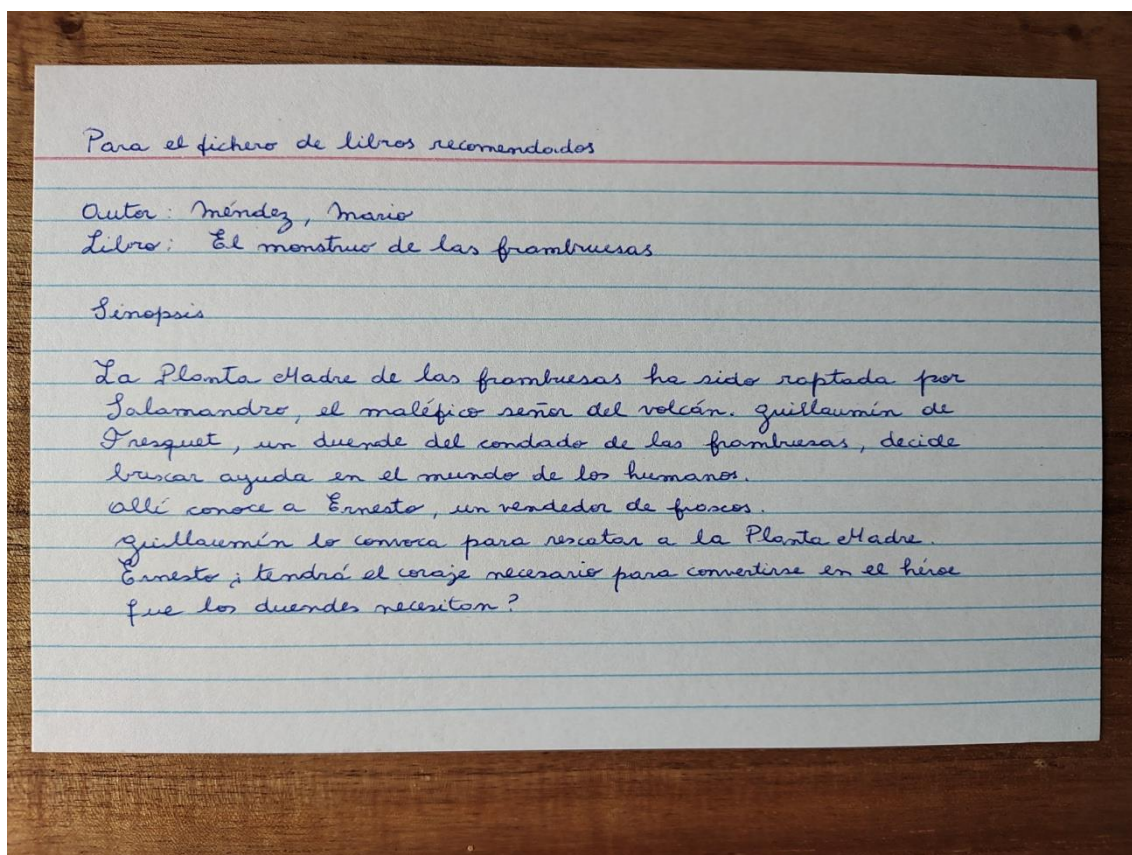 Para el fichero de libros recomendados
Autor: Méndez, Mario
Libro: El monstruo de las frambruesas
Sinopsis
La Planta Madre de las frambuesas ha sido raptada por
Salamandro, el maléfico señor del volcán. Guillaumín de
Fresquet, un duende del condado de las frambuesas, decide
buscar ayuda en el mundo de los humanos.
Allí conoce a Ernesto, un vendedor de frascos.
Guillaumín lo convoca para rescatar a la Planta Madre.
Ernesto ¿tendrá el coraje necesario para convertirse en el héroe
que los duendes necesitan?